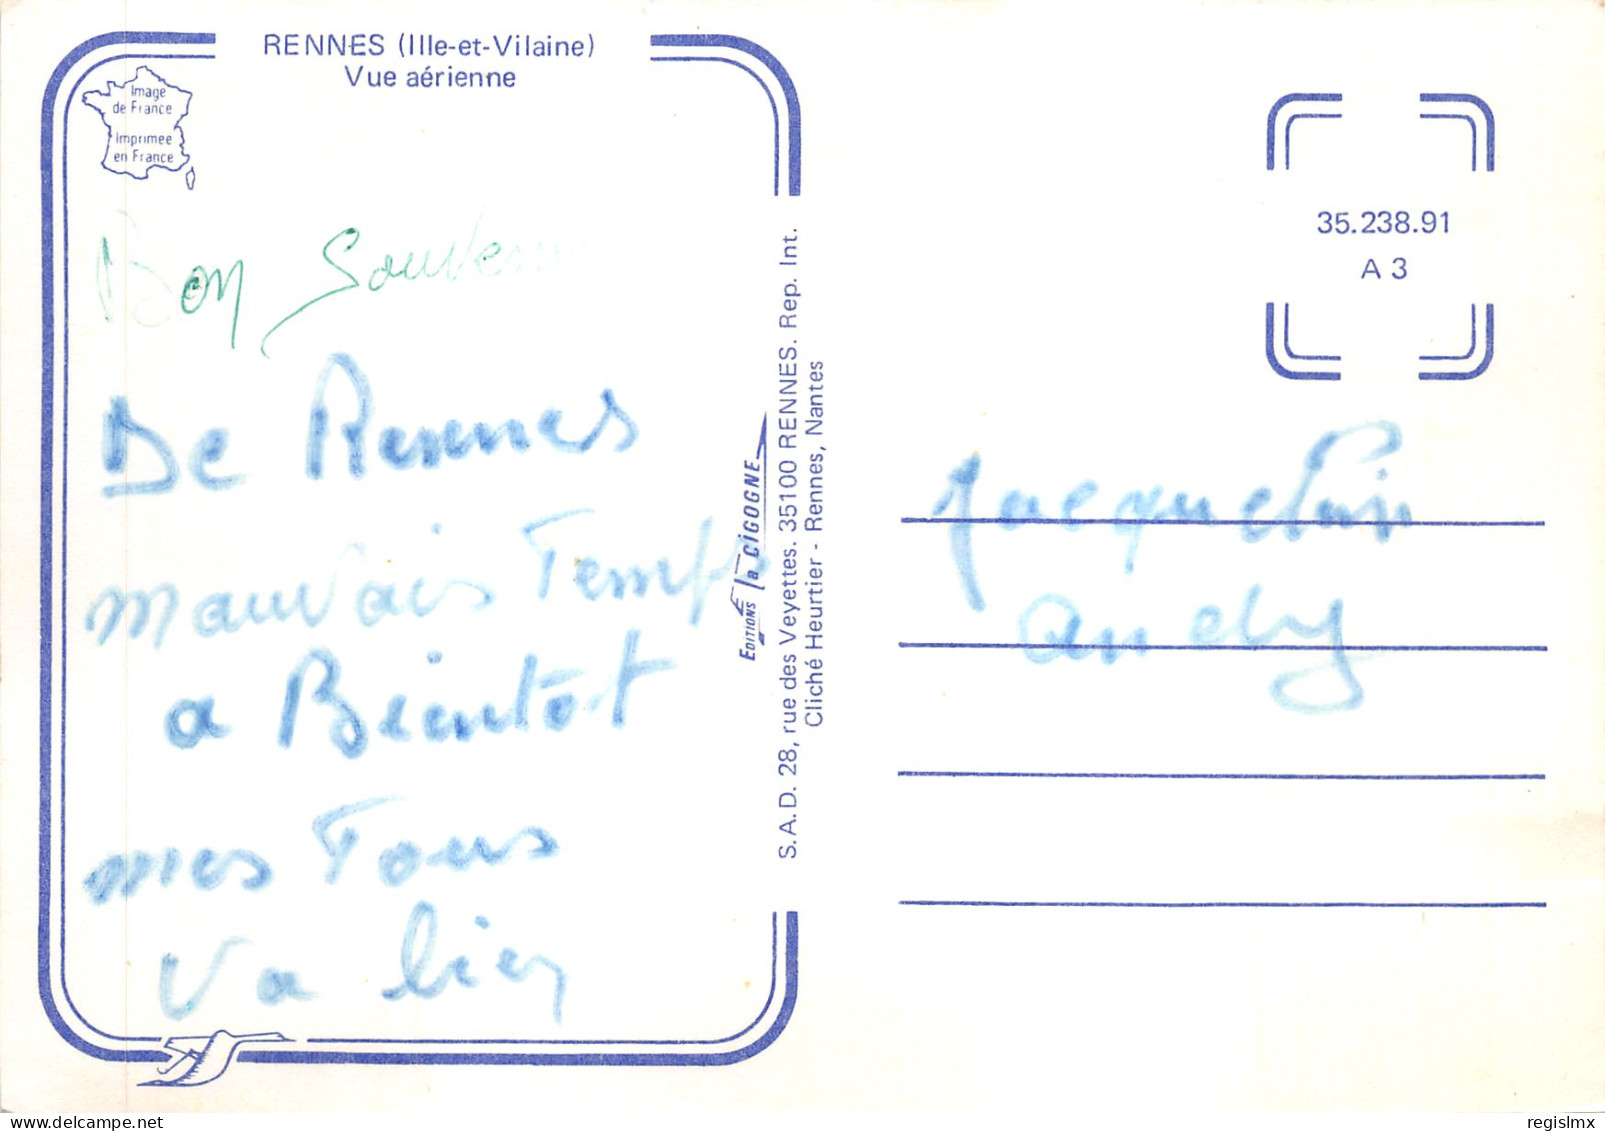 RENNES (Ille-et-Vilaine)
Vue aérienne
Image
de France
Imprimée
en France
Bon Souvenir
De Rennes
mauvais Temps
a Bientôt
mes Tous
va bien
EDITIONS la CIGOGNE
S.A.D. 28, rue des Veyettes. 35100 RENNES. Rep. Int.
Cliché Heurtier - Rennes, Nantes
35.238.91
A 3
Jacquelin
regislmx